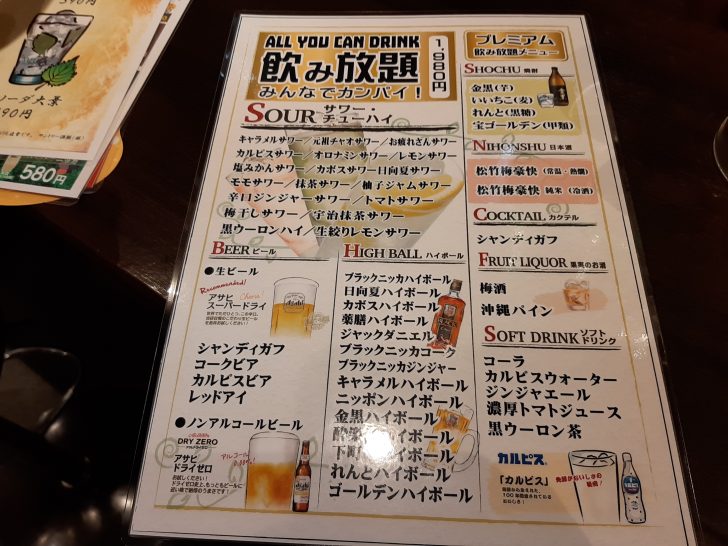 ALL YOU CAN DRINK
飲み放題
みんなでカンパイ！
1,980円
SOUR サワー・チューハイ
キャラメルサワー／元祖チャオサワー／お疲れさんサワー
カルピスサワー／オロナミンサワー／レモンサワー
塩みかんサワー／カボスサワー／日向夏サワー
モモサワー／抹茶サワー／柚子ジャムサワー
辛口ジンジャーサワー／トマトサワー
梅干しサワー／宇治抹茶サワー
黒ウーロンハイ／生絞りレモンサワー
BEER ビール
●生ビール
Recommended!
アサヒ
スーパードライ
Asahi
シャンディガフ
コークビア
カルピスビア
レッドアイ
●ノンアルコールビール
DRY ZERO
アサヒ
ドライゼロ
アルコール
0.00%!
HIGH BALL ハイボール
ブラックニッカハイボール
日向夏ハイボール
カボスハイボール
薬膳ハイボール
ジャックダニエル
ブラックニッカコーク
ブラックニッカジンジャー
キャラメルハイボール
ニッポンハイボール
金黒ハイボール
ハイボール
下町ハイボール
れんとハイボール
ゴールデンハイボール
プレミアム
飲み放題メニュー
SHOCHU 焼酎
金黒(芋)
いいちこ(麦)
れんと(黒糖)
宝ゴールデン(甲類)
NIHONSHU 日本酒
松竹梅豪快 (常温・熱燗)
松竹梅豪快 純米 (冷酒)
COCKTAIL カクテル
シャンディガフ
FRUIT LIQUOR 果実のお酒
梅酒
沖縄パイン
SOFT DRINK ソフトドリンク
コーラ
カルピスウォーター
ジンジャエール
濃厚トマトジュース
黒ウーロン茶
カルピス
「カルピス」
390円
ソーダ大葉
90円
580円